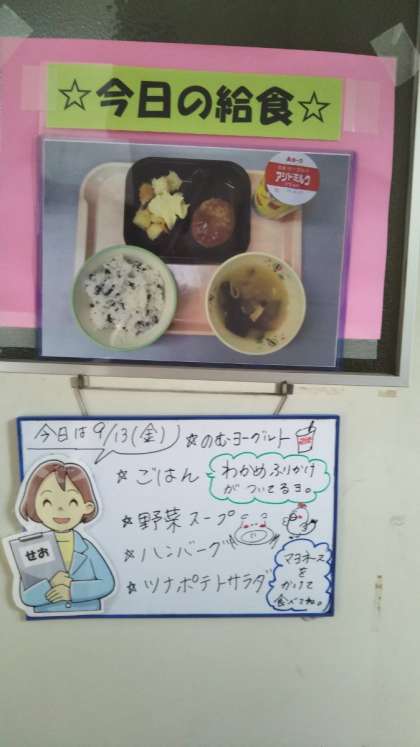 ☆今日の給食☆
アシドミルク
今日は9/13(金)
☆のむヨーグルト
☆ごはん
わかめふりかけ
がついてるヨ。
☆野菜スープ
☆ハンバーグ
☆ツナポテトサラダ
マヨネーズ
を
かけて
食べてね。
せお